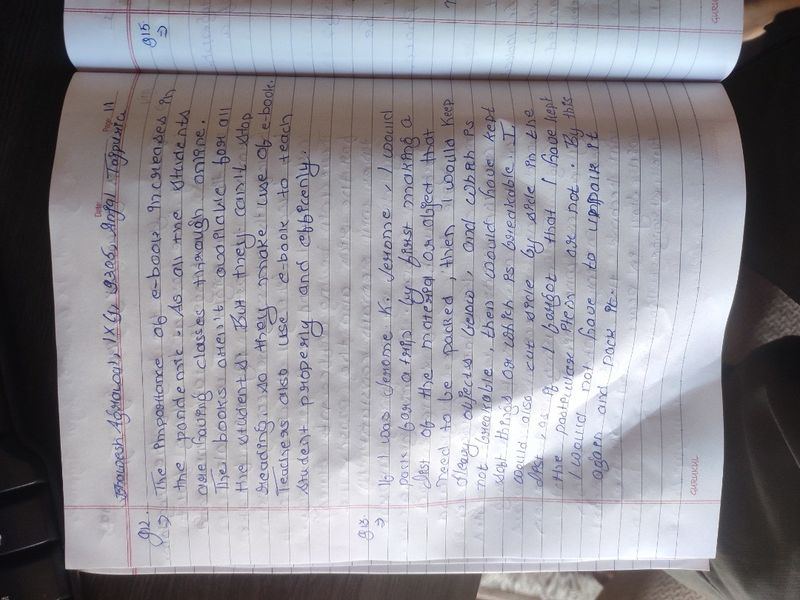 Date
Page 11
Agrawal, IX
Q12.
⇒ The importance of e-book increases in
the pandemic. As all the students
are having classes through online.
The books aren't avaplable for all
the students. But they can't stop
reading so they make use of e-book.
Teachers also use e-book to teach
student properly and efficenly.
Q13.
⇒ If I was Jerome K. Jerome, I would
pack for a trip by first making a
list of the material or object that
need to be packed, then I would keep
objects below, and which is
not breakable, then would have kept
things or which is breakable. I
would also cut side by side in the
list, as if I forgot that I have kept
the particular or not. By this
I would not have to unpack it
again and pack it.
GURUKUL
Q15
⇒
GURUKUL